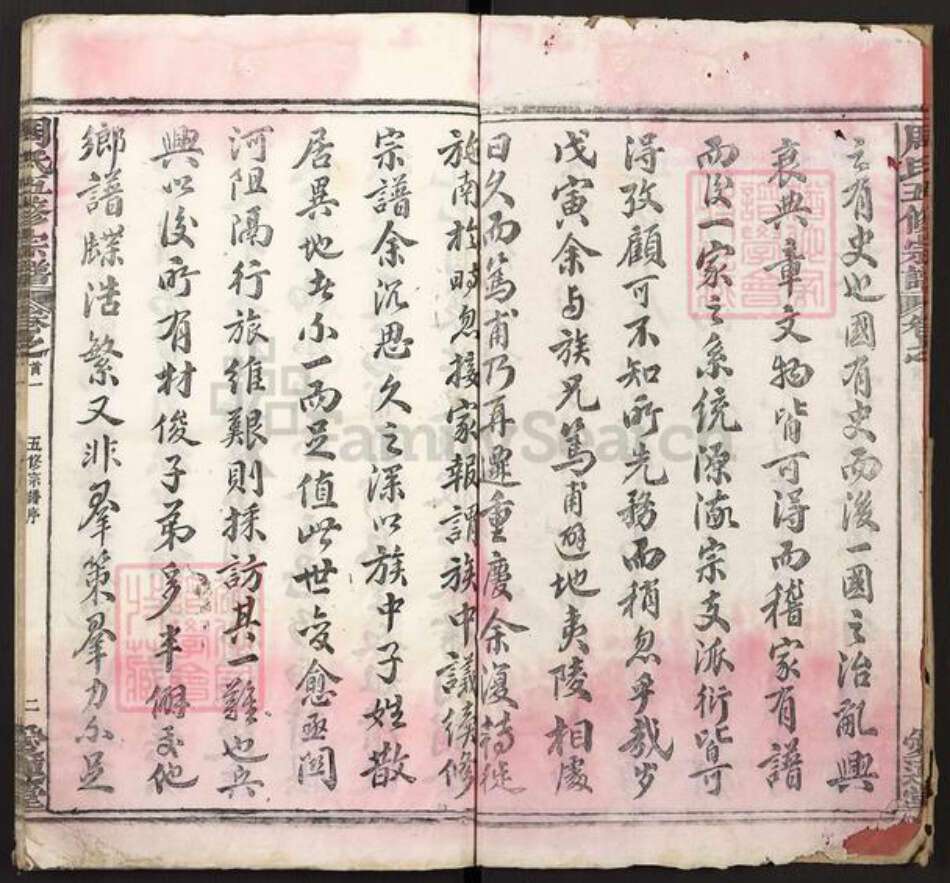 之有史也國有史而後一國之治亂興
衰典章文物皆可得而稽家有譜
而後一家之系統源流宗支派衍皆可
得攷顧可不知所先務而稍忽乎哉岁
戊寅余与族兄篤甫避地夷陵相處
日久而篤甫乃再遊重慶余復轉徙
施南於時忽接家報謂族中議續修
宗譜余沉思久之深以族中子姓散
居異地者不一而足值此世变愈亟関
河阻隔行旅維艱則採訪其一難也兵
興以後所有材俊子弟多半僑交他
鄉譜牒浩繁又非羣策羣力不足
周氏五修宗譜 卷之首一
五修宗譜序
二
愛蓮堂
周氏五修宗譜 卷之
FamilySearch